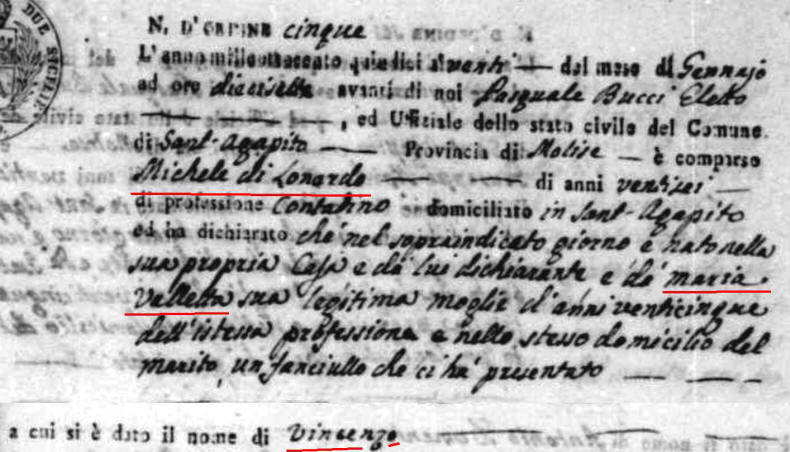 DUE SICILIE
N. D'ORDINE cinque
L'anno milleottocento quindici a' venti — del mese di Gennajo
ad ore diecisette avanti di noi Pasquale Bucci Eletto
— — —, ed Uffiziale dello stato civile del Comune
di Sant-Agapito — Provincia di Molise — è comparso
Michele di Lonardo — — di anni ventisei —
di professione Contadino domiciliato in Sant-Agapito
ed ha dichiarato che nel sopraindicato giorno è nato nella
sua propria Casa e da lui dichiarante e da maria
Valletta sua legitima moglie d'anni venticinque
dell'istessa professione e nello stesso domicilio del
marito, un fanciullo che ci ha presentato — — —
a cui si è dato il nome di Vincenzo